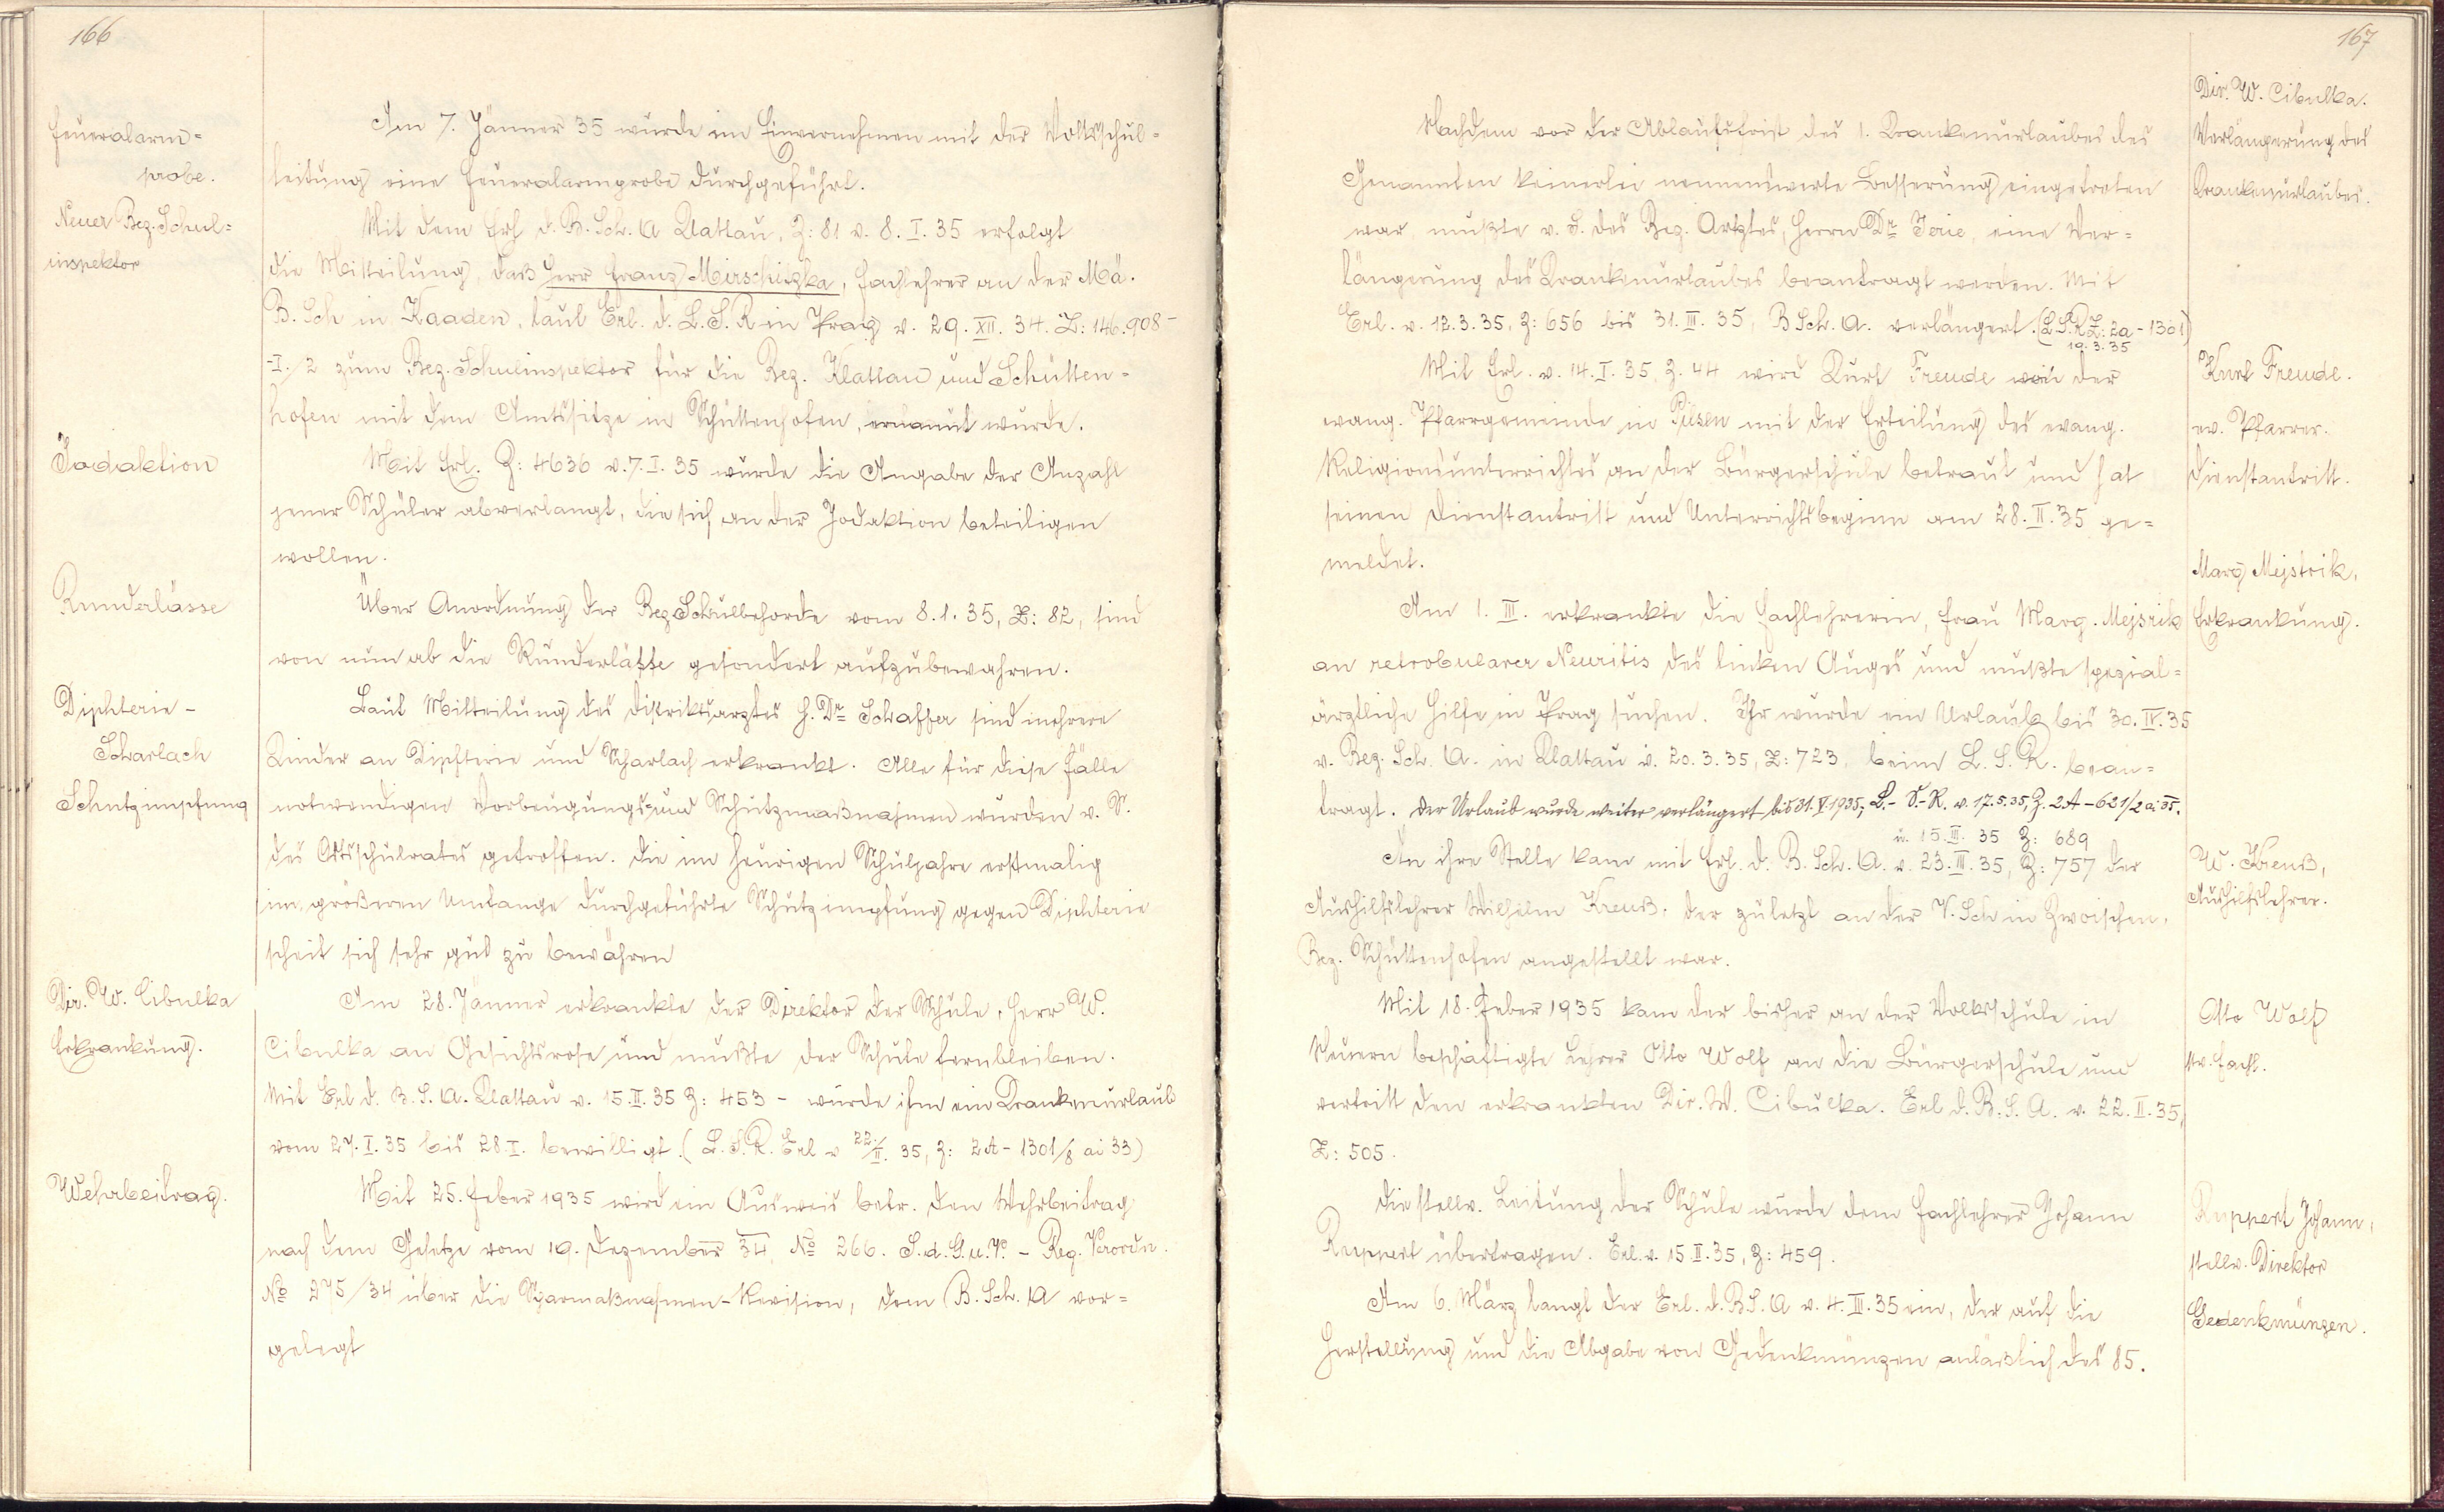 166
Feueralarm=
probe.
Am 7. Jänner 35 wurde im Einvernehmen mit der Volksschul=
leitung eine Feueralarmprobe durchgeführt.
Neuer Bez. Schul=
inspektor
Mit dem Erl. d. B. Sch. A Klattau, Z: 81 v. 8. I. 35 erfolgt
die Mitteilung, daß Herr Franz Mirschitzka, Fachlehrer an der Mä.
B. Sch in Kaaden, laut Erl. d. L. S. R in Prag v. 29. XII. 34. Z: 146.908-
-I./2 zum Bez. Schulinspektor für die Bez. Klattau und Schütten=
hofen mit dem Amtssitze in Schüttenhofen, ernannt wurde.
Jodaktion
Mit Erl. Z: 4636 v. 7. I. 35 wurde die Angabe der Anzahl
jener Schüler abverlangt, die sich an der Jodaktion beteiligen
wollen.
Runderlässe
Über Anordnung der Bez Schulbehörde vom 8. 1. 35, Z: 82, sind
von nun ab die Runderläße gesondert aufzubewahren.
Diphterie-
Scharlach
Schutzimpfung
Laut Mitteilung des Distriktsarztes H. Dr Schaffer sind mehrere
Kinder an Diphterie und Scharlach erkrankt. Alle für diese Fälle
notwendigen Vorbeugungs- und Schutzmaßnahmen wurden v. S.
des Ortsschulrates getroffen. Die im heurigen Schuljahre erstmalig
im größeren Umfange durchgeführte Schutzimpfung gegen Diphterie
scheit sich sehr gut zu bewähren
Dir. W. Cibulka
Erkrankung.
Am 28. Jänner erkrankte der Direktor der Schule, Herr W.
Cibulka an Gesichtsrose und mußte der Schule fernbleiben.
Mit Erl d. B. S. A. Klattau v. 15. II. 35 Z: 453 - wurde ihm ein Krankenurlaub
vom 27. I. 35 bis 28. I. bewilligt. (L. S. R. Erl v 22./II. 35, Z: 2A - 1301/8 ai 33)
Wehrbeitrag.
Mit 25. Feber 1935 wird ein Ausweis betr. den Wehrbeitrag
nach dem Gesetze vom 19. Dezember 34, No 266. S. d. G. u. V. - Reg. Verordn.
No 275/34 über die Sparmaßnahmen-Revision, dem B. Sch. A vor=
gelegt
167
Dir. W. Cibulka.
Verlängerung des
Krankenurlaubes.
Nachdem vor der Ablaufsfrist des 1. Krankenurlaubes des
Genannten keinerlei nennenswerte Besserung eingetreten
war, mußte v. S. des Bez. Arztes, Herrn Dr Jerie, eine Ver=
längerung des Krankenurlaubes beantragt werden. Mit
Erl. v. 12. 3. 35, Z: 656 bis 31. III. 35, B Sch. A. verlängert. (L.S.R Z: 2a - 1301)
19. 3. 35
Kurt Freude.
ev. Pfarrer.
Dienstantritt.
Mit Erl. v. 14. I. 35, Z. 44 wird Kurt Freude von der
evang. Pfarrgemeinde in Pilsen mit der Erteilung des evang.
Religionsunterrichtes an der Bürgerschule betraut und hat
seinen Dienstantritt und Unterrichtsbeginn am 28. II. 35 ge=
meldet.
Marg Mejstrik,
Erkrankung.
Am 1. III. erkrankte die Fachlehrerin, Frau Marg. Mejsrik
an retrobularer Neuritis des linken Auges und mußte spezial=
ärztliche Hilfe in Prag suchen. Ihr wurde ein Urlaub bis 30. IV. 35
v. Bez. Sch. A. in Klattau v. 20. 3. 35, Z: 723, beim L. S. R. bean=
tragt. Der Urlaub wurde weiter verlängert bis 31. V. 1935, L.- S.-R. v. 17. 5. 35, Z. 2A - 621/2 ai 35.
u. 15. III. 35 Z: 689
W. Kreuß,
Aushilfslehrer.
An ihre Stelle kam mit Erl. d. B. Sch. A. v. 23. III. 35, Z: 757 der
Aushilfslehrer Wilhelm Kreuß, der zuletzt an der V. Sch in Zwoischen,
Bez. Schüttenhofen angestellt war.
Otto Wolf
stv. Fachl.
Mit 18. Feber 1935 kam der bisher an der Volksschule in
Neuern beschäftigte Lehrer Otto Wolf an die Bürgerschule und
vertritt den erkrankten Dir. W. Cibulka. Erl d. B. S. A. v. 22. II. 35,
Z: 505.
Ruppert Johann,
stellv. Direktor
Die stellv. Leitung der Schule wurde dem Fachlehrer Johann
Ruppert übertragen. Erl. v. 15. II. 35, Z: 459.
Gedenkmünzen.
Am 6. März langt der Erl. d. B. S. A v. 4. III. 35 ein, der auf die
Herstellung und die Abgabe von Gedenkmünzen anläßlich des 85.